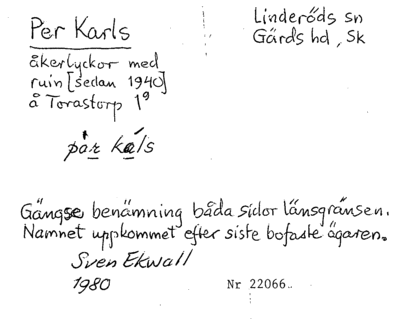 Per Karls
Linderöds sn
Gärds hd, Sk
åkerlyckor med
ruin [sedan 1940]
å Torastorp 1⁹
pàr káls
Gängse benämning båda sidor länsgränsen.
Namnet uppkommet efter siste bofaste ägaren.
Sven Ekwall
1980
Nr 22066..